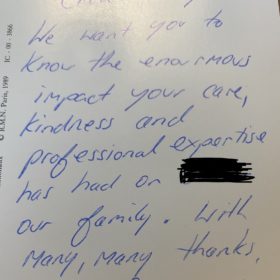 We want you to
know the enormous
impact your care,
kindness and
professional expertise
has had on
our family. With
many, many thanks,
© R.M.N. Paris, 1989 IC - 00 - 3866